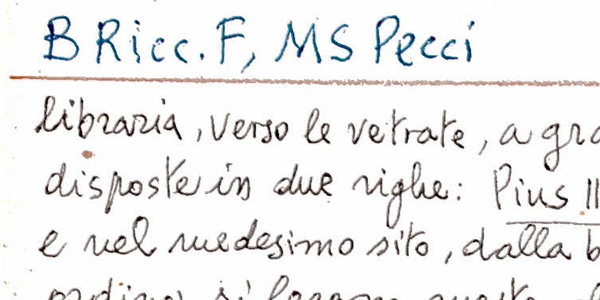 B Ricc. F, MS Pecci
libraria, verso le vetrate, a gra
disposte in due righe: Pius II
e nel medesimo sito, dalla b